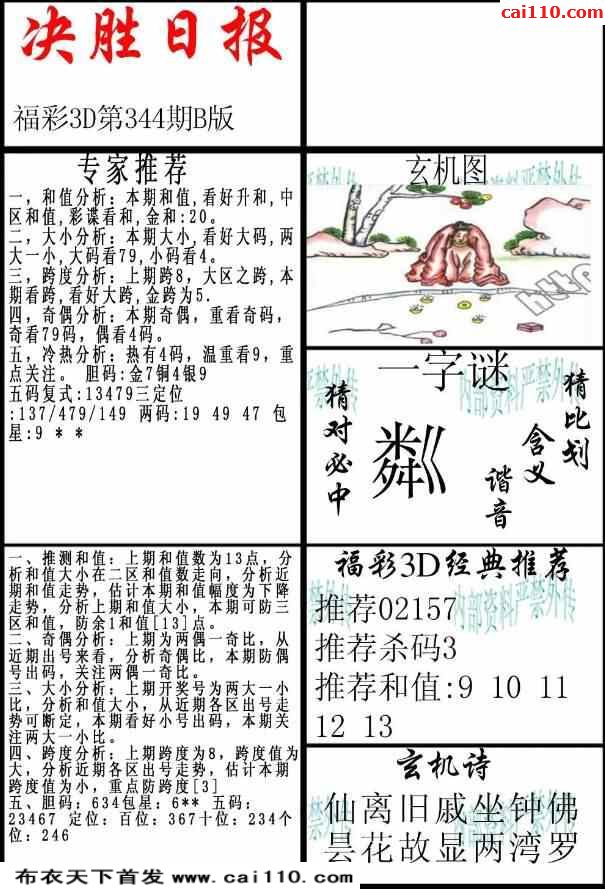 cai110.com
决胜日报
福彩3D第344期B版
专家推荐
一，和值分析：本期和值,看好升和,中
区和值,彩谍看和,金和:20。
二，大小分析：本期大小,看好大码,两
大一小,大码看79,小码看4。
三，跨度分析：上期跨8，大区之跨,本
期看跨,看好大跨,金跨为5.
四，奇偶分析：本期奇偶，重看奇码，
奇看79码，偶看4码。
五，冷热分析：热有4码，温重看9，重
点关注。 胆码:金7铜4银9
五码复式:13479三定位
:137/479/149 两码:19 49 47 包
星:9 * *
玄机图
内部资料严禁外传
一字谜
内部资料严禁外传
猜对必中
粼
谐音
含义
猜比划
一、推测和值：上期和值数为13点，分
析和值大小在二区和值数走向，分析近
期和值走势，估计本期和值幅度为下降
走势，分析上期和值大小，本期可防三
区和值，防余1和值[13]点。
二、奇偶分析：上期为两偶一奇比，从
近期出号来看，分析奇偶比，本期防偶
号出码，关注两偶一奇比。
三、大小分析：上期开奖号为两大一小
比，分析和值大小，从近期各区出号走
势可断定，本期看好小号出码，本期关
注两大一小比。
四、跨度分析：上期跨度为8，跨度值为
大，分析近期各区出号走势，估计本期
跨度值为小，重点防跨度[3]
五、胆码：634包星：6** 五码：
23467 定位：百位：367十位：234个
位：246
福彩3D经典推荐
内部资料严禁外传
推荐02157
推荐杀码3
推荐和值:9 10 11
12 13
玄机诗
仙离旧戚坐钟佛
昙花故显两湾罗
布衣天下首发 www.cai110.com